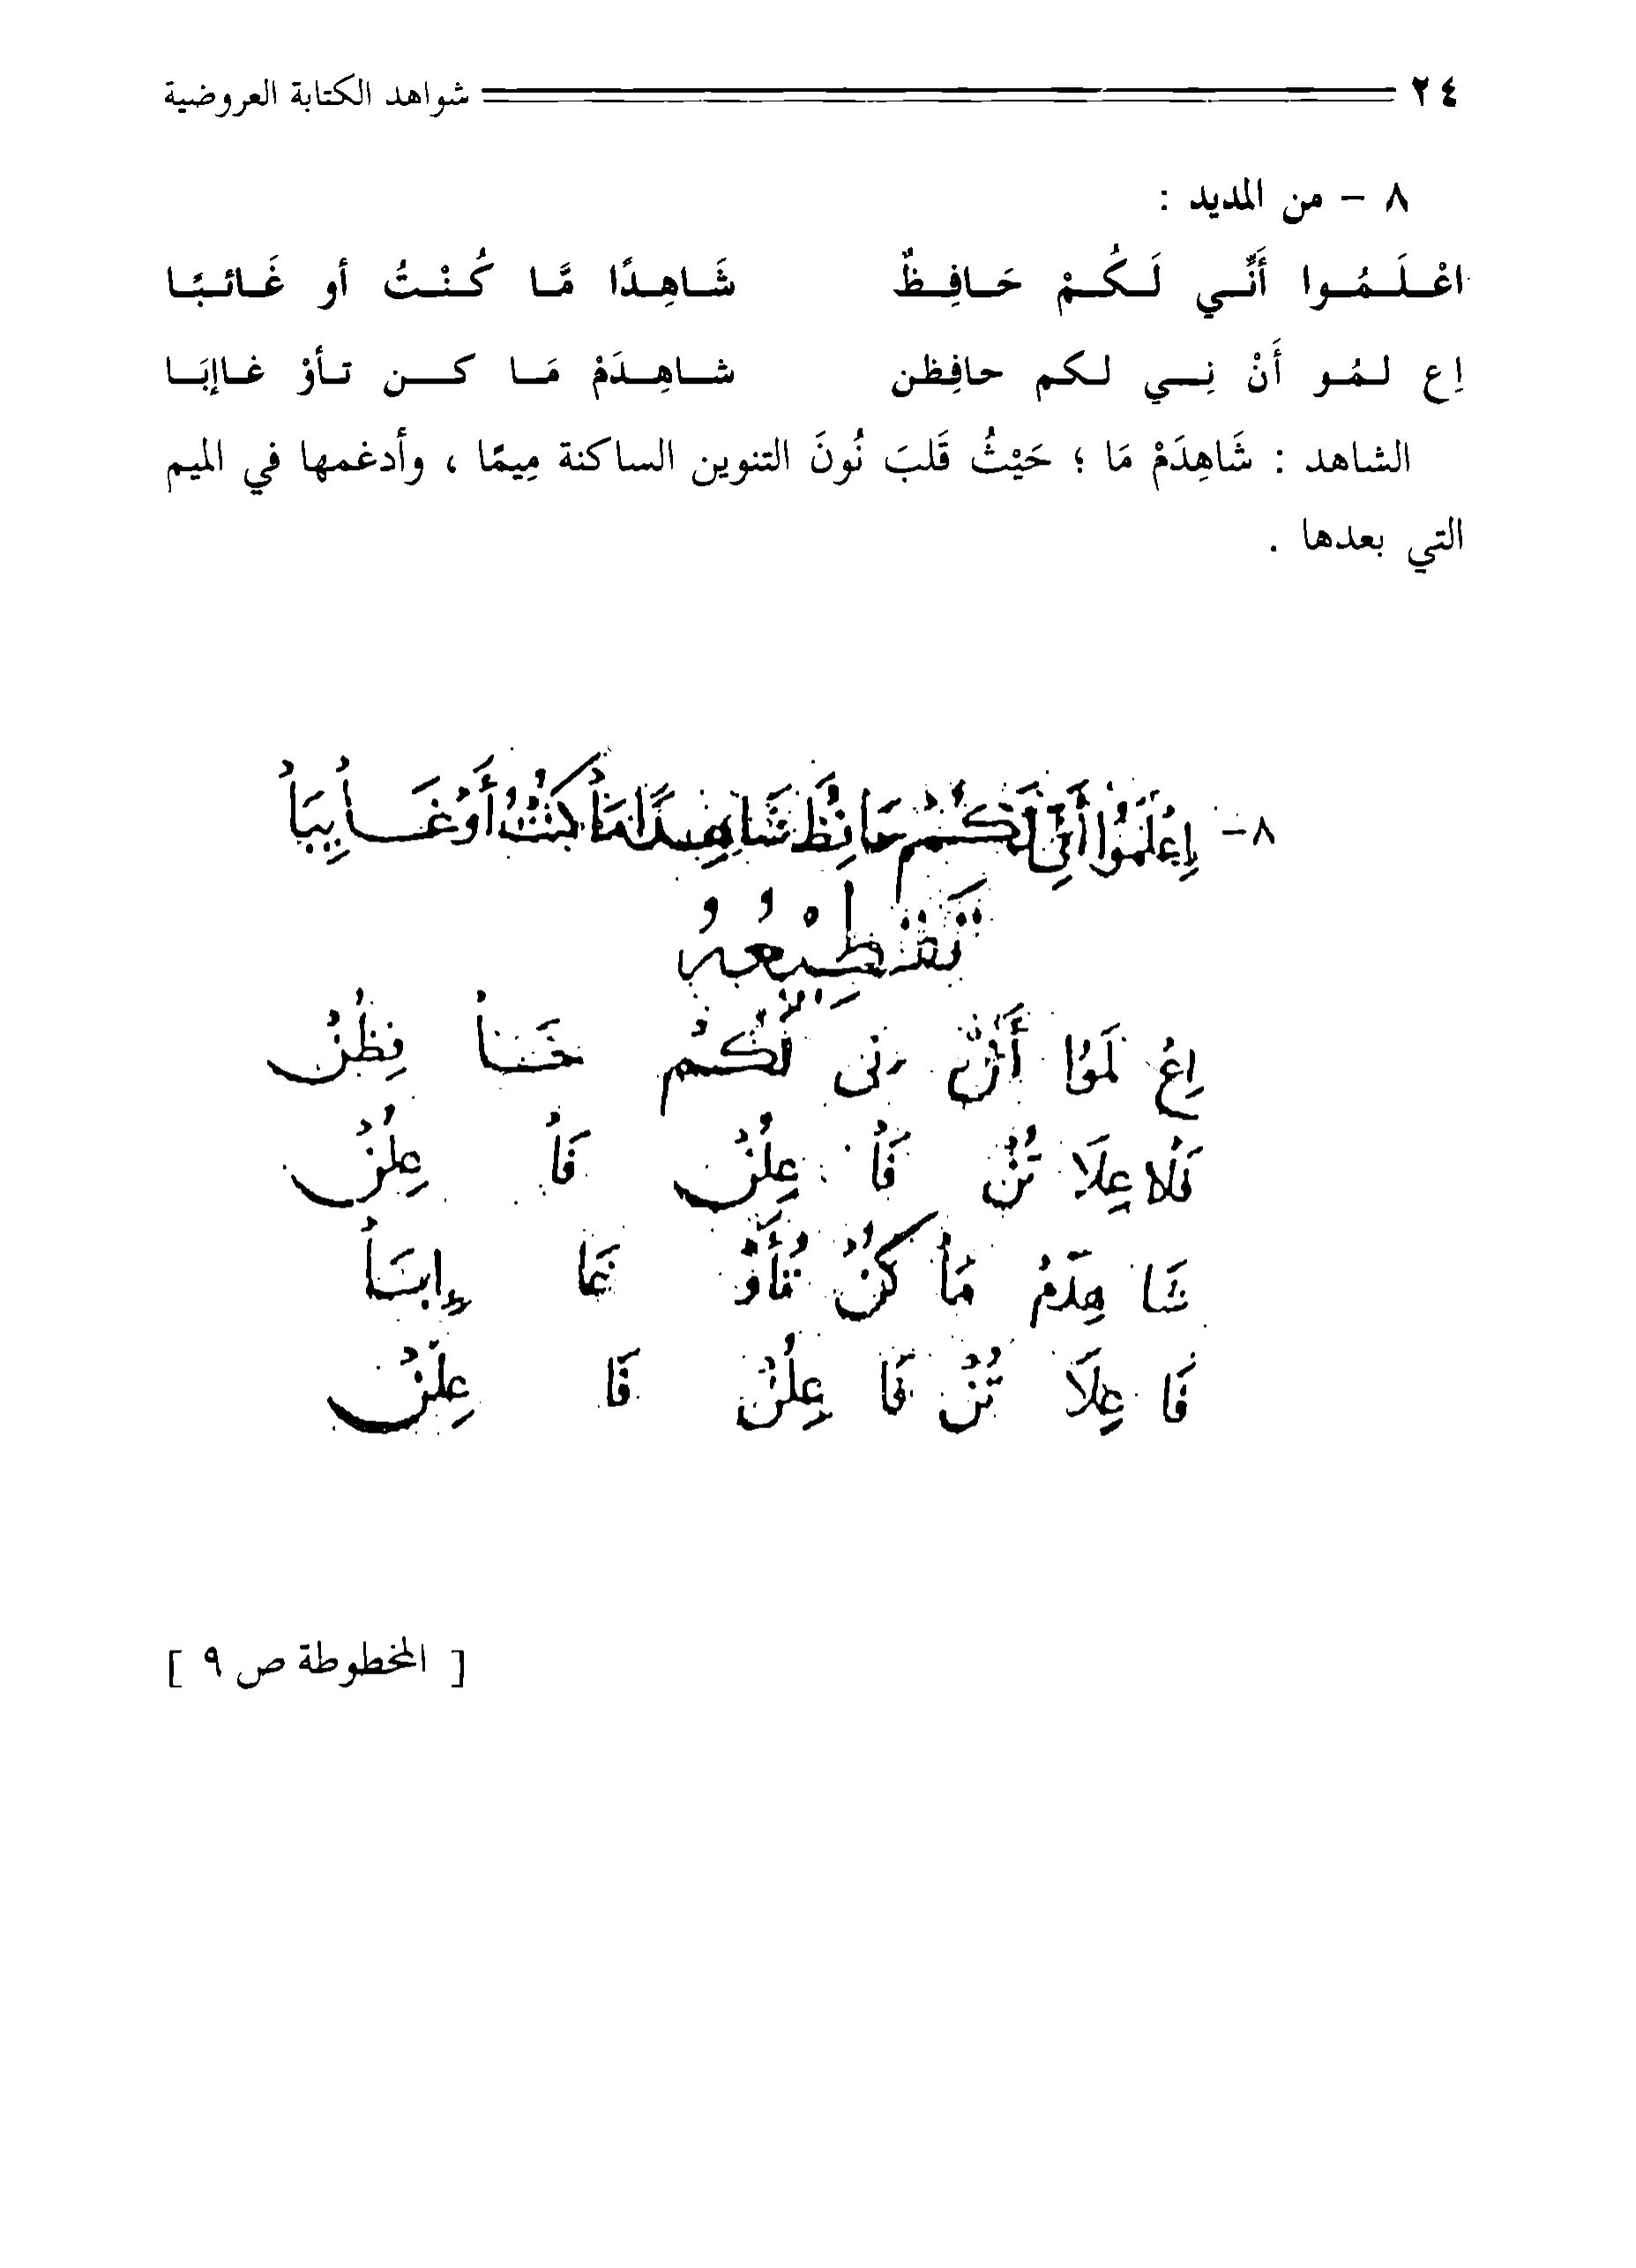 ٢٤ شواهد الكتابة العروضية
٨ – من المديد :
اعْـلَـمُـوا أَنَّـي لَـكُـمْ حَـافِـظٌ شَـاهِـدًا مَّـا كُـنْـتُ أو غَـائـبًـا
اِع لـمُـو أَنْ نِـي لـكم حافِظن شـاهِـدَمْ مَـا كـن تـأوْ غـاإبَـا
الشاهد : شَاهِدَمْ مَا ؛ حَيْثُ قَلبَ نُونَ التنوين الساكنة مِيمًا ، وأدغمها في الميم
التي بعدها .
٨- إِعْلَمُوْا أَنِّى لَكُمْ حَافِظٌ شَاهِداً مَاْ كُنْتُ أَوْ غَـاْيِباً
تَقْطِيْعُهُ
اِعْ لَمُوْا أَنْ نِى لَكُمْ حَـاْ فِظُنْ
فَاْ عِلَا تُنْ فَاْ عِلُنْ فَاْ عِلُنْ
شَا هِدَمْ مَاْ كُنْ تُأَوْ غَا إِبَـاْ
فَا عِلَا تُنْ فَا عِلُنْ فَا عِلُنْ
[ المخطوطة ص ٩ ]